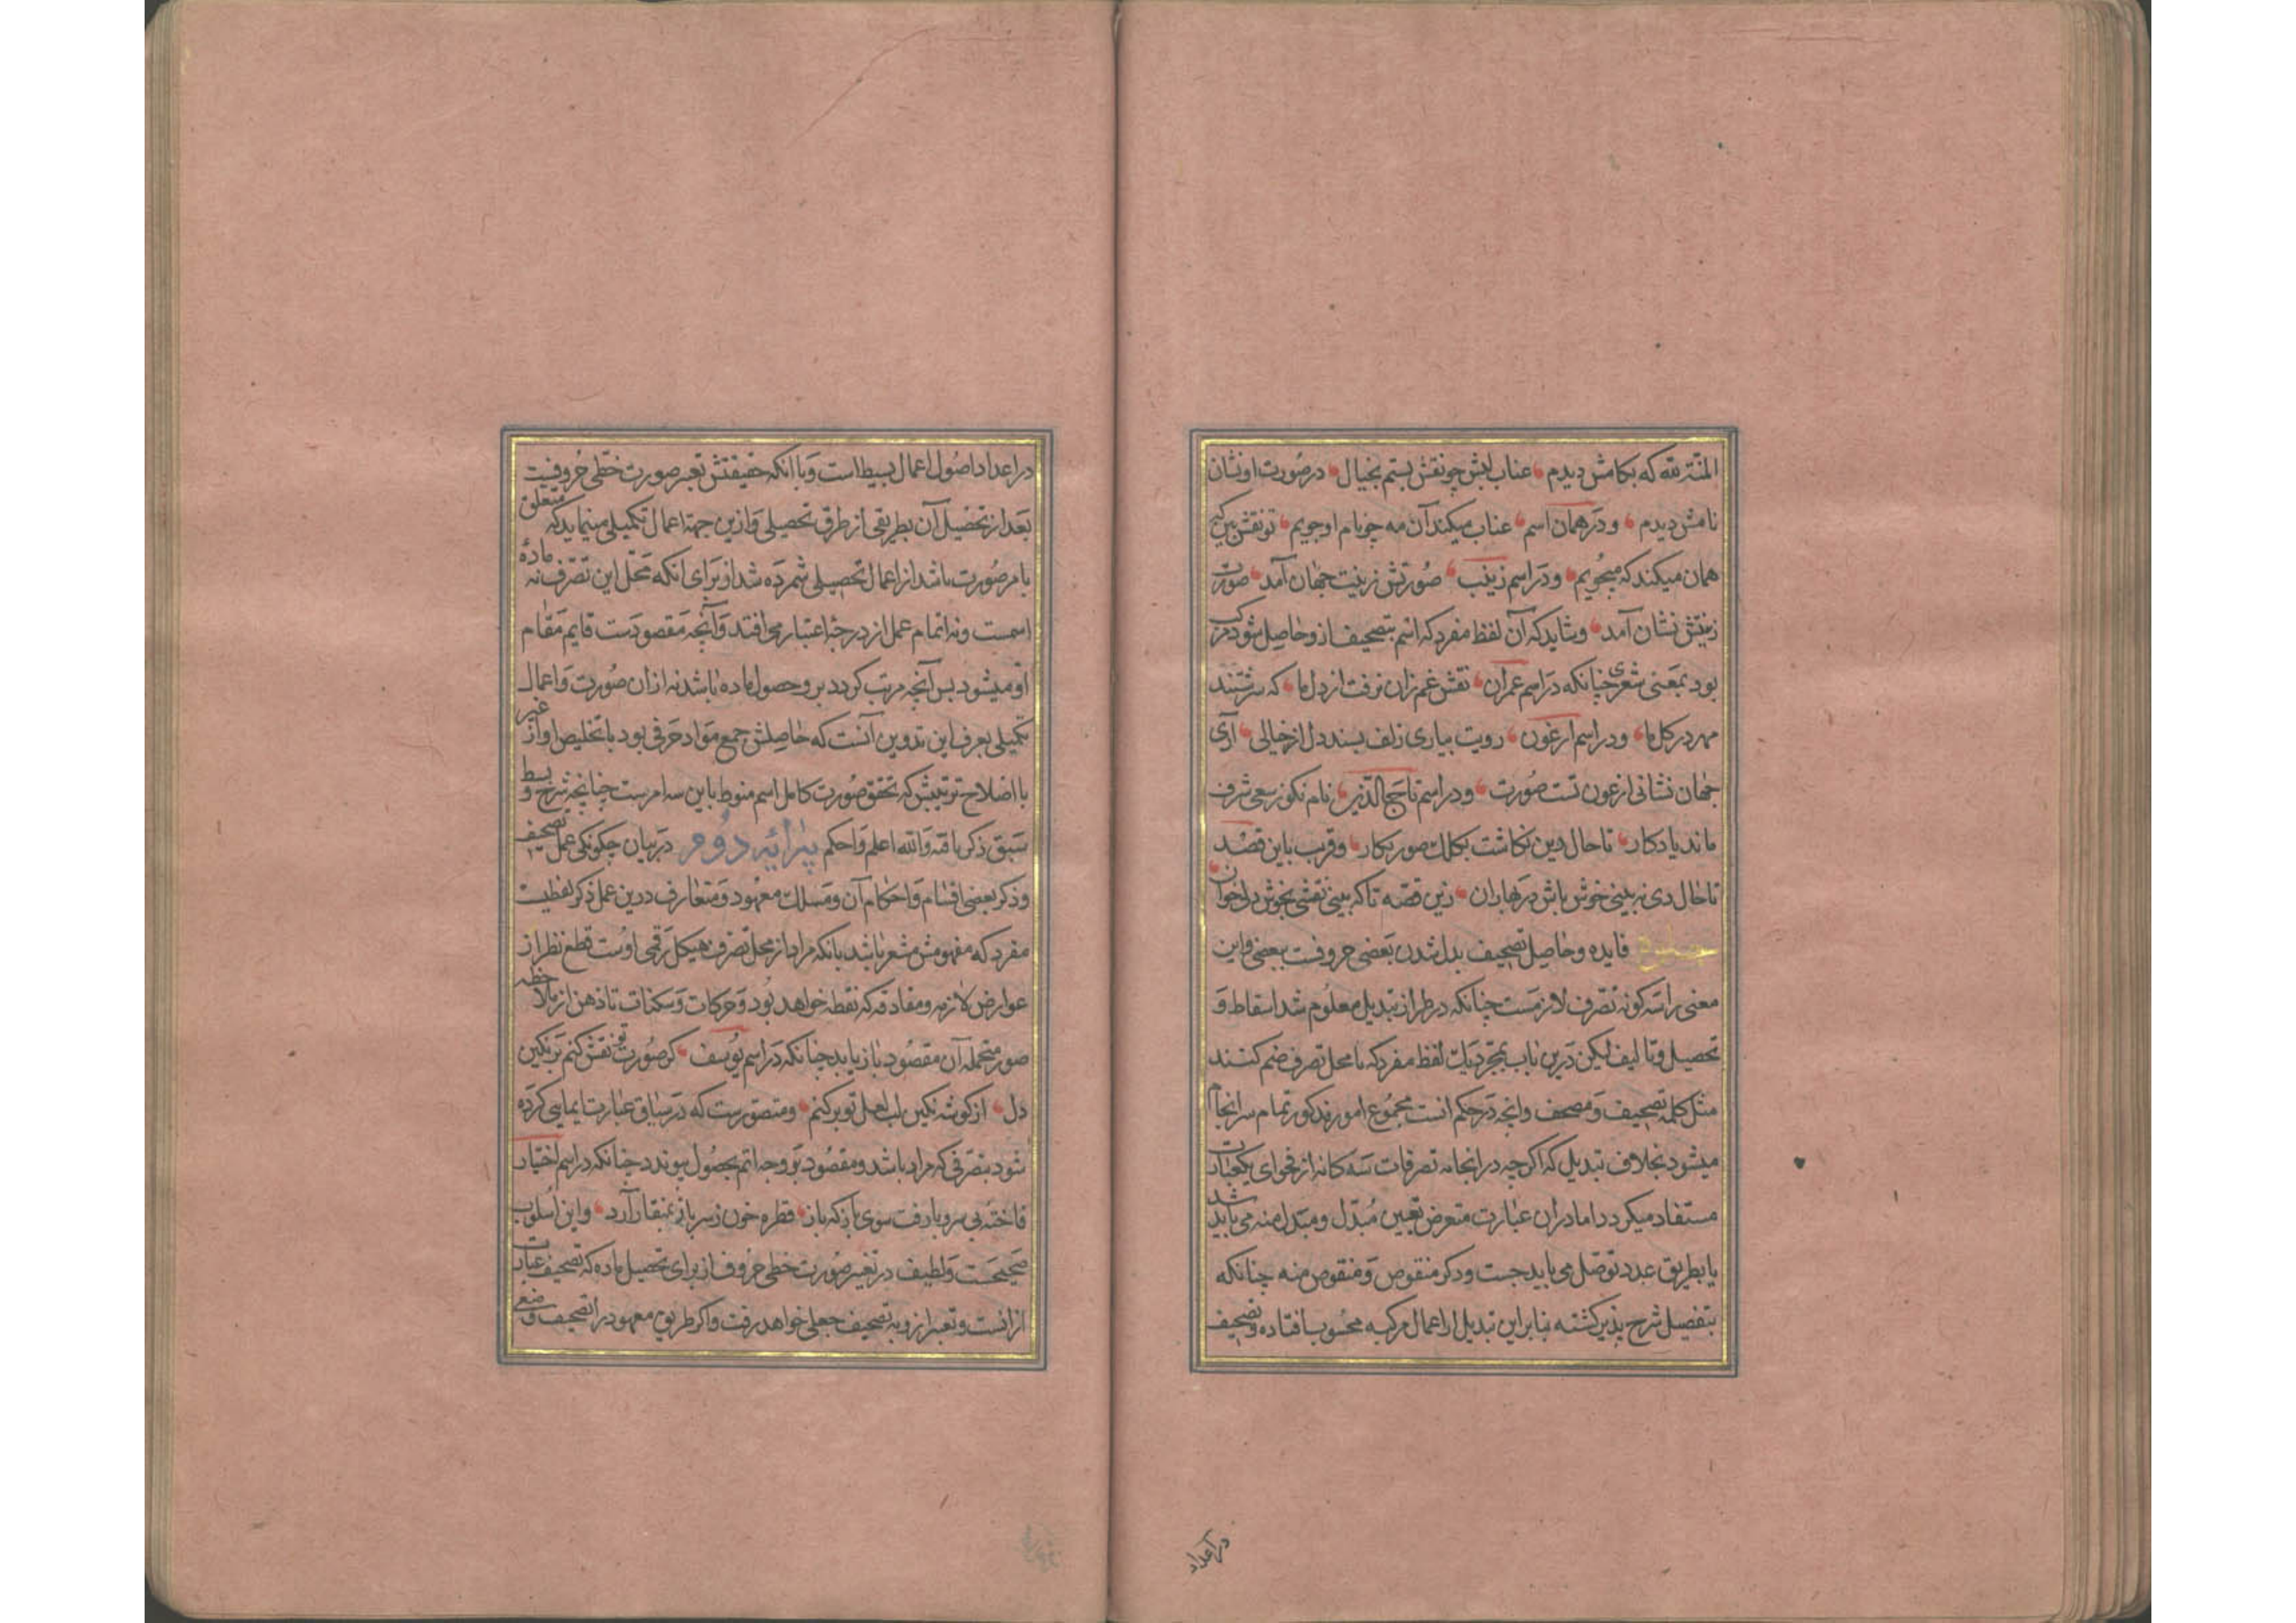 المنّة لله که بکامش دیدم عناب لبش چو نقش بستم بخیال در صورت او نشان
نامش دیدم و در همان اسم عناب میکند آن مه چو نام او جویم تو نقش بین که
همان میکند که میجویم و در اسم زینب صورتش زینت جهان آمد صورت
زینتش نشان آمد و شاید که آن لفظ مفرد که اسم بتصحیف ازو حاصل شود مرکب
بود بمعنی شعری چنانکه در اسم عمران نقش غم زان نرفت از دل ما که سرشتند
مهر در کل ما و در اسم ارغون رویت بیاری زلف بسند دل از خیالی آری
جهان نشانی ارغون تست صورت و در اسم تاج الدین نام نکو ز سعی شرف
ماند یادکار تا حال دین نکاشت بکلک صور نکار و قرب باین قصد
تا حال دی نه بینی خوش باش در بهاران زین قصه تا که بینی نقشی بخوش دلخوان
فایده و حاصل تصحیف بدل شدن بعضی حروفست ببعضی و این
معنی را سه کونه تصرف لازمست چنانکه در طراز تبدیل معلوم شد اسقاط و
تحصیل و تالیف لیکن درین باب بمجرد یک لفظ مفرد که با محل تصرف ضم کنند
مثل کلمه تصحیف و مصحف و انچه در حکم انست مجموع امور مذکور تمام سرانجام
میشود بخلاف تبدیل که اکرچه در انجا نه تصرفات سه کانه از فحوای یکعبارت
مستفاد میکردد اما دران عبارت متعرض تعیین مبدّل و مبدل منه می باید شد
یا بطریق عدد توصل می باید جست و ذکر منقوص و منقوص منه چنانکه
بتفصیل شرح پذیر کشته بنابراین تبدیل از اعمال مرکبه محسوب افتاده و تصحیف
در اعداد
در اعداد اصول اعمال بسیط است و با انکه حقیقتش تغییر صورت خطی حروفست
بعد از تحصیل آن بطریقی از طرق تحصیلی و ازین جهة اعمال تکمیلی مینماید که متعلق
بامر صورت باشد از اعمال تحصیلی شمرده شد از برای انکه محل این تصرف نه ماده
اسمست و نه اتمام عمل از درجه اعتبار می افتد و آنچه مقصودست قایم مقام
او میشود بس آنچه مرتب کردد برو حصول ماده باشد نه از ان صورت و اعمال
تکمیلی بعرف این تدوین آنست که حاصلش جمع مواد حرفی بود یا تخلیص او از غیر
یا اصلاح ترتیبش که تحقق صورت کامل اسم منوط باین سه امرست چنانچه شرح و بسط
سبق ذکر یافته و الله اعلم و احکم پیرایه دوم در بیان چکونکی عمل تصحیف
و ذکر بعضی اقسام و احکام آن و مسلک معهود و متعارف درین عمل ذکر لفظیست
مفرد که مفهومش مشعر باشد بانکه مراد از محل تصرف هیکل رقمی اوست قطع نظر از
عوارض لازمه و مفارقه که نقطه خواهد بود و حرکات و سکنات تا ذهن از ملاحظه
صور محتمله آن مقصود باز یابد چنانکه در اسم یوسف کر صورت تو نقش کنم بر نکین
دل از کوشه نکین لب لعل تو بر کنم و متصورست که در سیاق عبارت ایمایی کرده
شود بتصرفی که مراد باشد و مقصود بر وجه اتم بحصول پیوندد چنانکه در اسم اختیار
فاخته بی سر و پا رفت سوی باز که باز قطره خون ز سر باز بمنقار آرد و این اسلوب
صحیحست و لطیف در تغییر صورت خطی حروف از برای تحصیل ماده که تصحیف عبارت
از انست و تعبیر ازو به تصحیف جعلی خواهد رفت و اکر طریق معهود را تصحیف وضعی